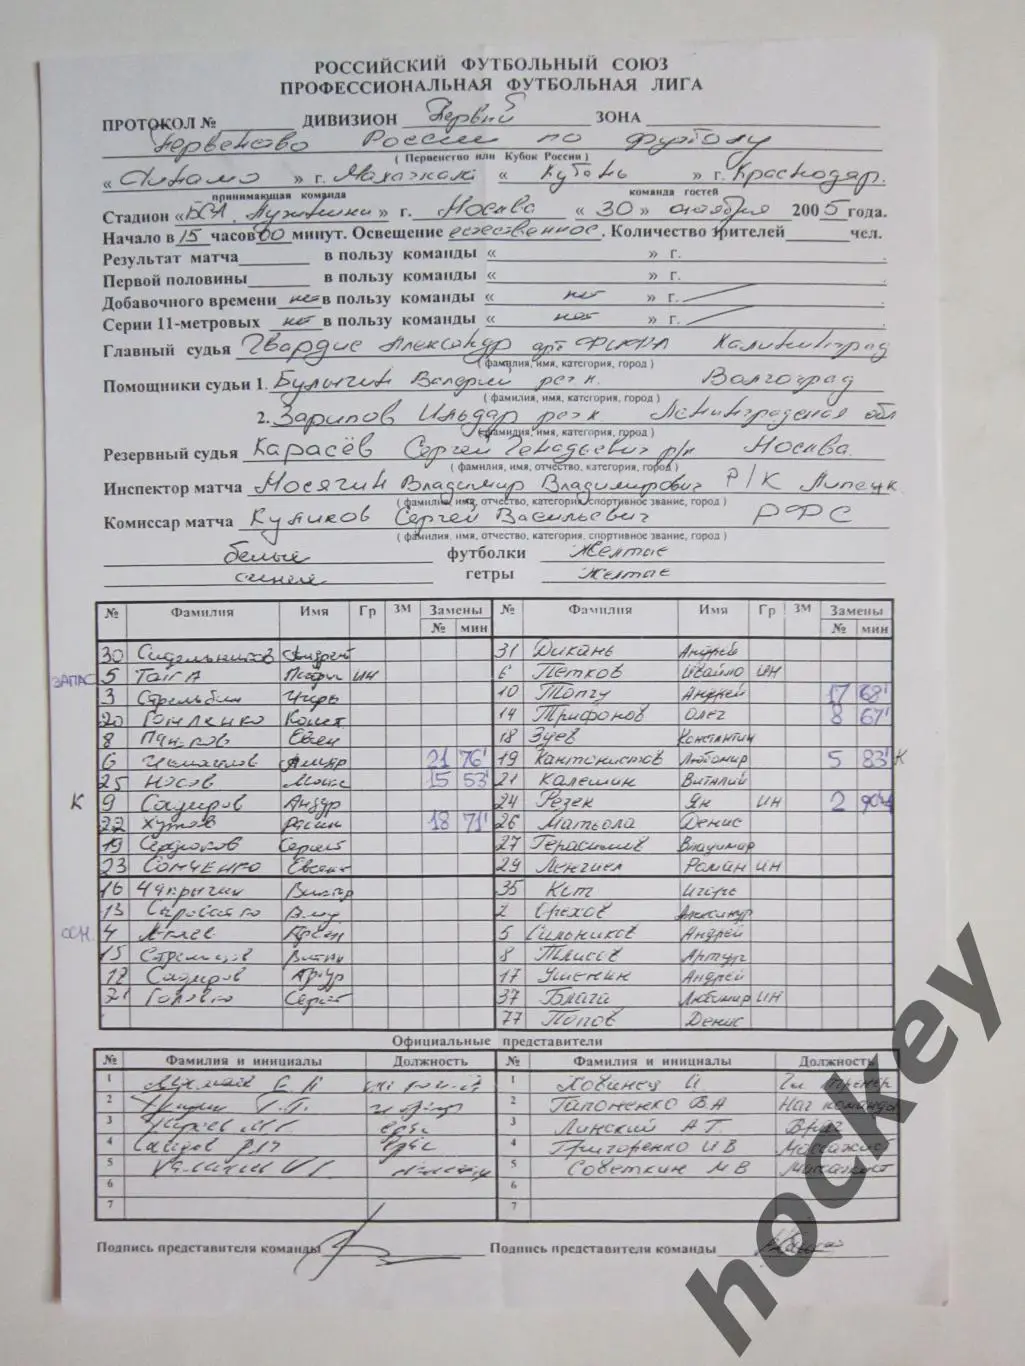 РОССИЙСКИЙ ФУТБОЛЬНЫЙ СОЮЗ
ПРОФЕССИОНАЛЬНАЯ ФУТБОЛЬНАЯ ЛИГА
ПРОТОКОЛ № ДИВИЗИОН Первый ЗОНА
Первенство России по футболу
( Первенство или Кубок России )
« Динамо » г. Махачкала « Кубань » г. Краснодар.
принимающая команда команда гостей
Стадион «БСА Лужники» г. Москва « 30 » октября 2005 года.
Начало в 15 часов 00 минут. Освещение естественное. Количество зрителей чел.
Результат матча в пользу команды « » г.
Первой половины в пользу команды « » г.
Добавочного времени нет в пользу команды « нет » г.
Серии 11-метровых нет в пользу команды « нет » г.
Главный судья Гвардис Александр Калининград
(фамилия, имя, категория, город )
Помощники судьи 1. Булыгин Валерий респ к. Волгоград
( фамилия, имя, категория, город )
2. Зарипов Ильдар респ к Ленинградская обл
(фамилия, имя, категория, город )
Резервный судья Карасёв Сергей Генадьевич р/к Москва.
( фамилия, имя, отчество, категория, город )
Инспектор матча Мосягин Владимир Владимирович Р/К Липецк.
( фамилия, имя, отчество, категория, спортивное звание, город )
Комиссар матча Куликов Сергей Васильевич РФС
( фамилия, имя, отчество, категория, спортивное звание, город )
белые футболки желтые
синие гетры желтые
№ Фамилия Имя Гр ЗМ Замены № Фамилия Имя Гр ЗМ Замены
№ мин № мин
30 Сидельников Андрей 31 Дикань Андрей
ЗАПАС 5 ИН 6 Петков Ивайло ИН
3 Стрельбин Игорь 10 Топчу Андрей 17 68'
20 14 Трифонов Олег 8 67'
8 Панков Евген 18 Зуев Константин
6 21 76' 19 Кантонистов Любомир 5 83' К
25 Носов Макс 15 53' 21 Калешин Виталий
К 9 Садиров Анзур 24 Резек Ян ИН 2
22 18 71' 26 Матьола Денис
19 Сердюков Сергей 27 Герасимов Владимир
23 Сонченко Евгени 29 Ленгиел Роман ИН
16 Чапрыгин Виктор 35 Кот Игорь
13 2 Орехов Александр
4 5 Сильников Андрей
15 8 Тлисов Артур
18 Садиров Артур 17 Ушенин Андрей
21 Головко Сергей 37 Блага Любомир ИН
77 Попов Денис
Официальные представители
№ Фамилия и инициалы Должность № Фамилия и инициалы Должность
1 1 Ховинец Й. Гл тренер
2 2 Гапоненко В А Нач команды
3 3 Линский А Г. Врач
4 4 Григоренко И В Массажист
5 5 Советкин М В Массажист
6 6
7 7
Подпись представителя команды Подпись представителя команды
hockey